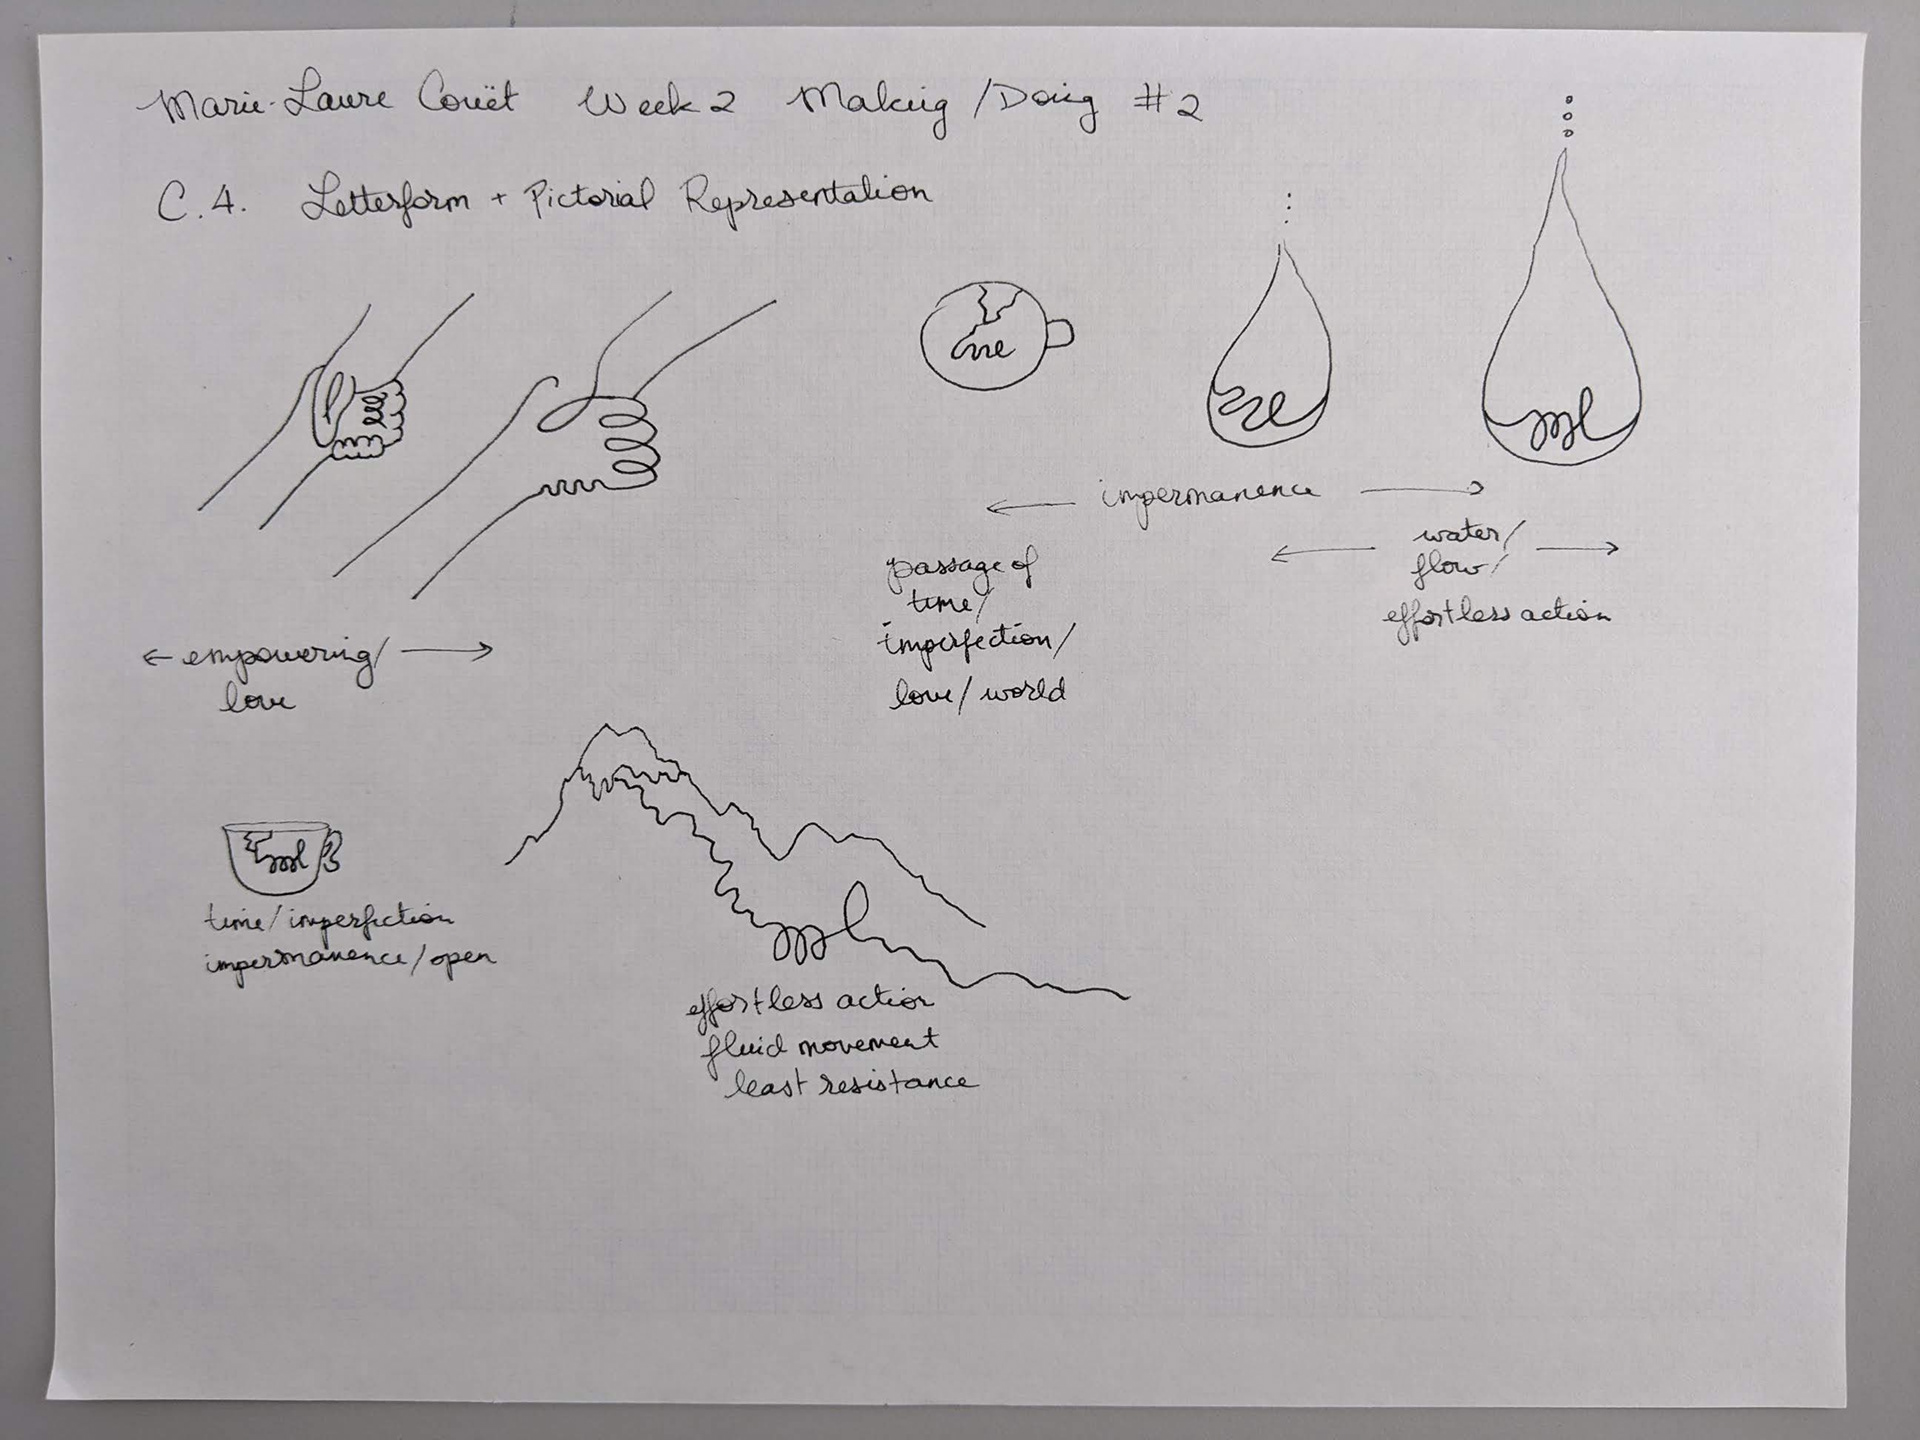 Marie-Laure Couët Week 2 Making/Doing #2
C.4. Letterform + Pictorial Representation
ml
← impermanence →
passage of
time/
imperfection/
love/world
← water/ →
flow/
effortless action
← empowering/ →
love
ml
time/imperfection
impermanence/open
ml
effortless action
fluid movement
least resistance